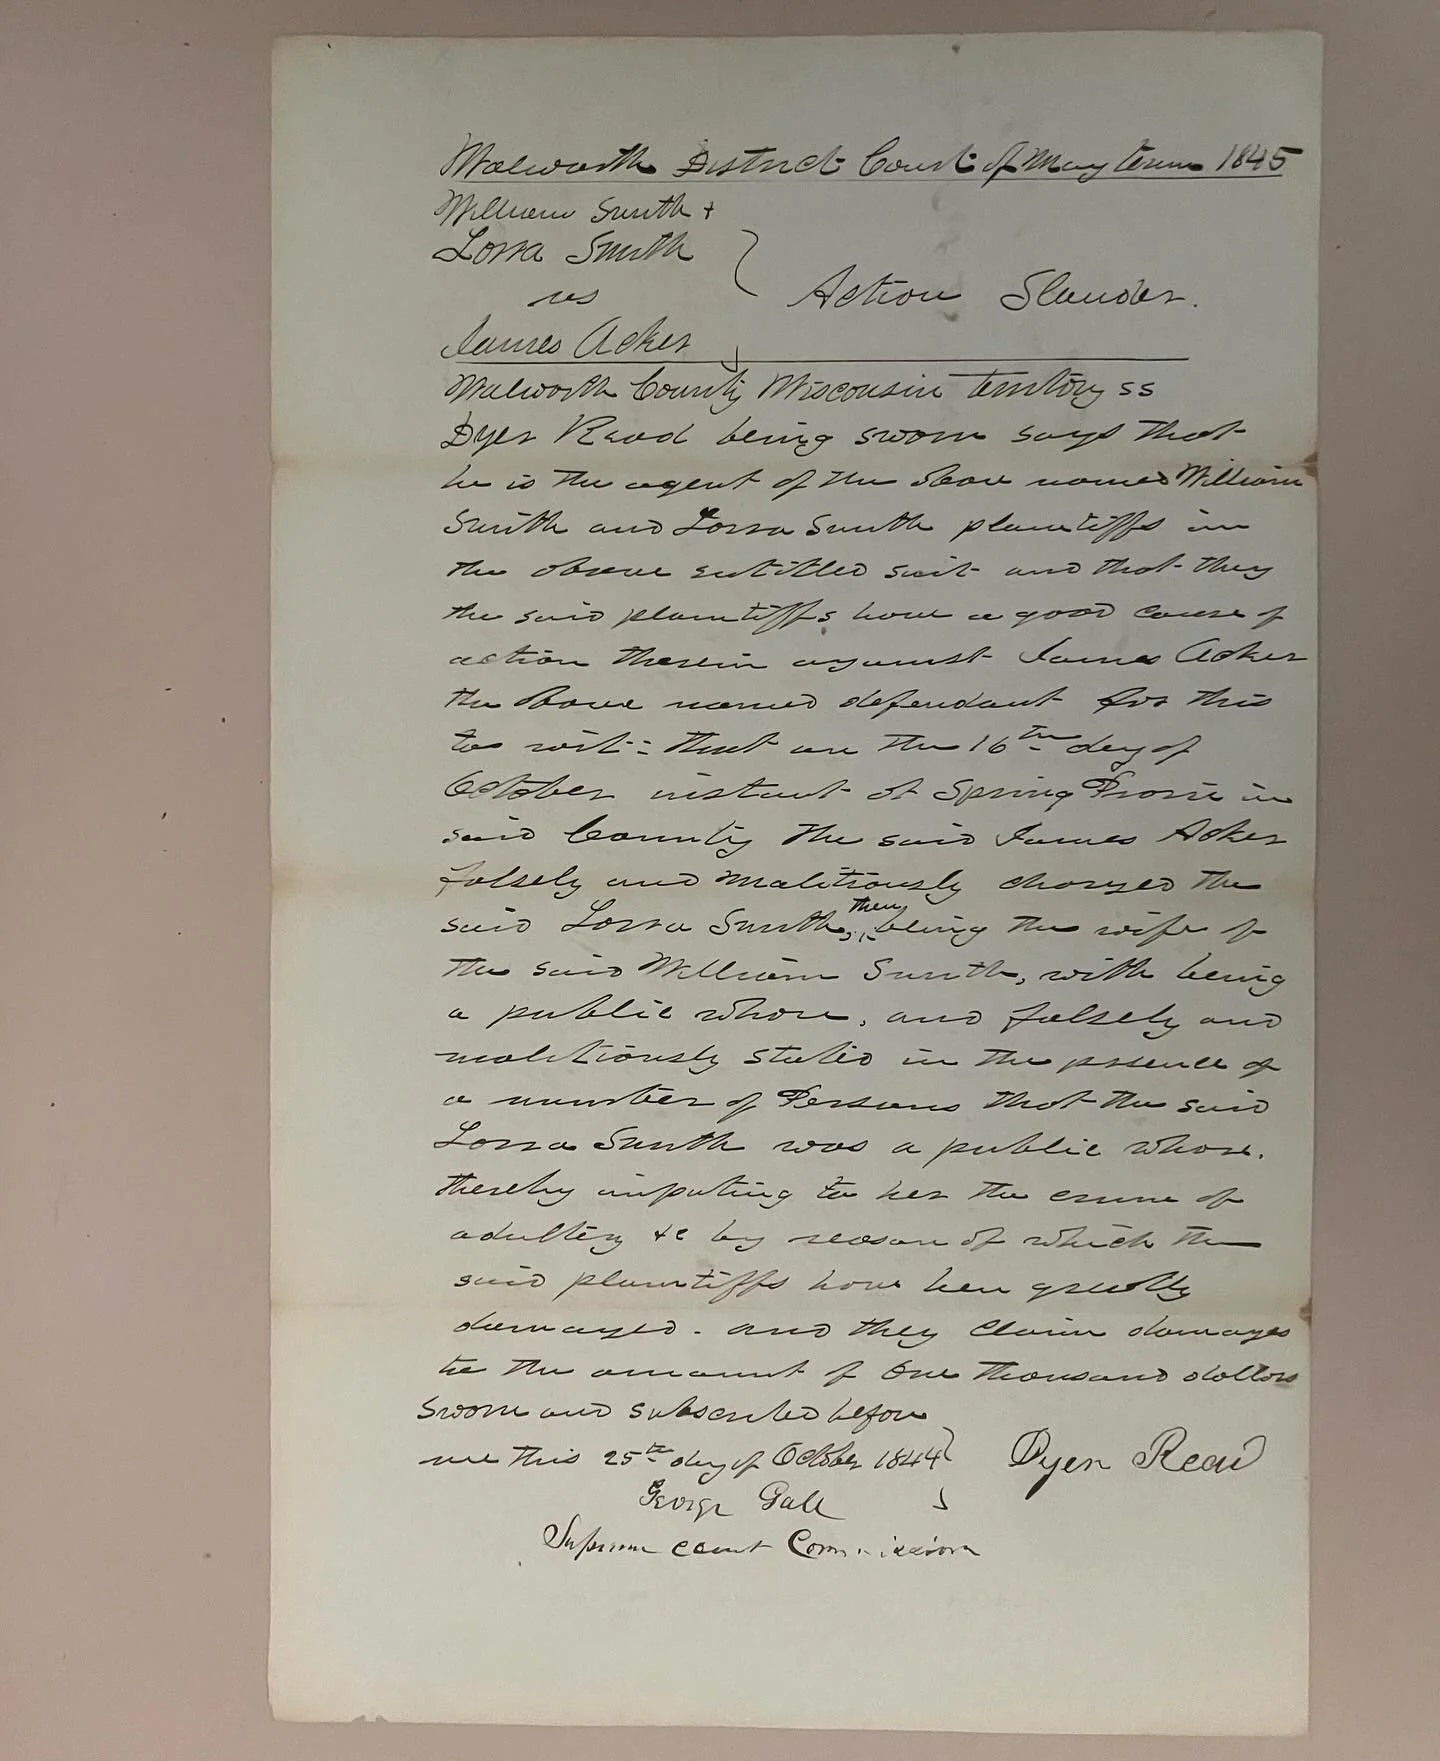 Walworth District Court of May term 1845
William Smith +
Lorra Smith
vs
Action Slander.
James Acker
Walworth County Wisconsin Territory ss
Dyer Read being sworn says that
he is the agent of the above named William
Smith and Lorra Smith plaintiffs in
the above entitled suit and that they
the said plaintiffs have a good cause of
action therein against James Acker
the above named defendant for this
to wit: that on the 16th day of
October instant at Spring Prairie in
said County the said James Acker
falsely and malitiously charged the
said Lorra Smith, then being the wife of
the said William Smith, with being
a public whore, and falsely and
malitiously stated in the presence of
a number of Persons that the said
Lorra Smith was a public whore.
thereby imputing to her the crime of
adultery &c by reason of which the
said plaintiffs have been greatly
damaged. and they claim damages
to the amount of One thousand dollars
Sworn and subscribed before
me this 25th day of October 1844
Dyer Read
George Gale
Supreme Court Commissioner